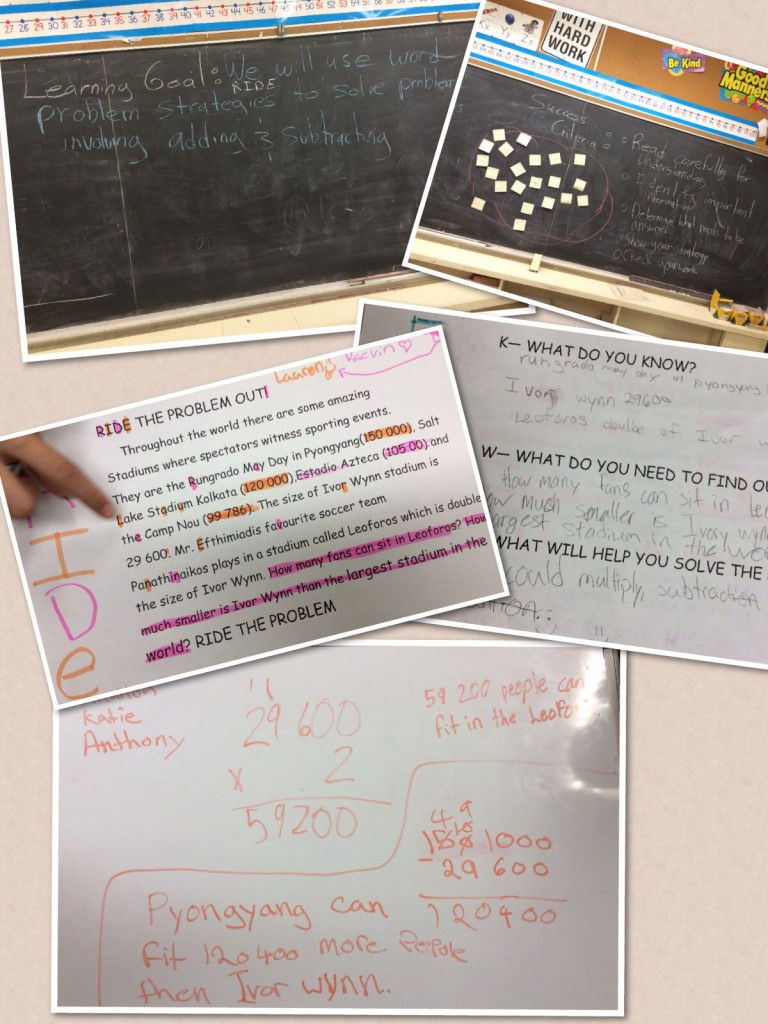 27 28 29 30 31 32 33 34 35 36 37 38 39 40 41 42 43 44 45 46 47 48 49 50 51 52 53 54 55 56 57 58 59 60
Learning Goal: We will use word
RIDE
problem strategies to solve problem
involving adding & Subtracting
WITH
HARD
WORK
Xx Yy Zz
Be Kind
Good
Manners
Success
Criteria:
Read carefully for
understanding
Identify important
information
Determine what needs to be
answered
Show your strategy
Check your work
Lauren Karvin
RIDE THE PROBLEM OUT!
Throughout the world there are some amazing
Stadiums where spectators witness sporting events.
They are the Rungrado May Day in Pyongyang(150 000), Salt
Lake Stadium Kolkata (120 000),Estadio Azteca (105 00) and
the Camp Nou (99 786). The size of Ivor Wynn stadium is
29 600. Mr. Efthimiadis favourite soccer team
Panathinaikos plays in a stadium called Leoforos which is double
the size of Ivor Wynn. How many fans can sit in Leoforos? How
much smaller is Ivor Wynn than the largest stadium in the
world? RIDE THE PROBLEM
I
D
e
K– WHAT DO YOU KNOW?
rungrado may day in pyongyang
Ivor wynn 29600
Leoforos doulbe of Ivor w
W– WHAT DO YOU NEED TO FIND OU
How many fans can sit in Leo
ow much smaller is Ivory wynn
argest stadium in the wo
WHAT WILL HELP YOU SOLVE THE
could multiply, subtraction
Katie
Anthony
11
29 600
x 2
59200
59 200 people can
fit in the Leofo
4 9
10
150 1000
- 29 600
120400
Pyongyang can
fit 120400 more Peipole
then Ivor wynn.